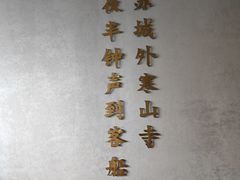 苏城外寒山寺
夜半钟声到客船